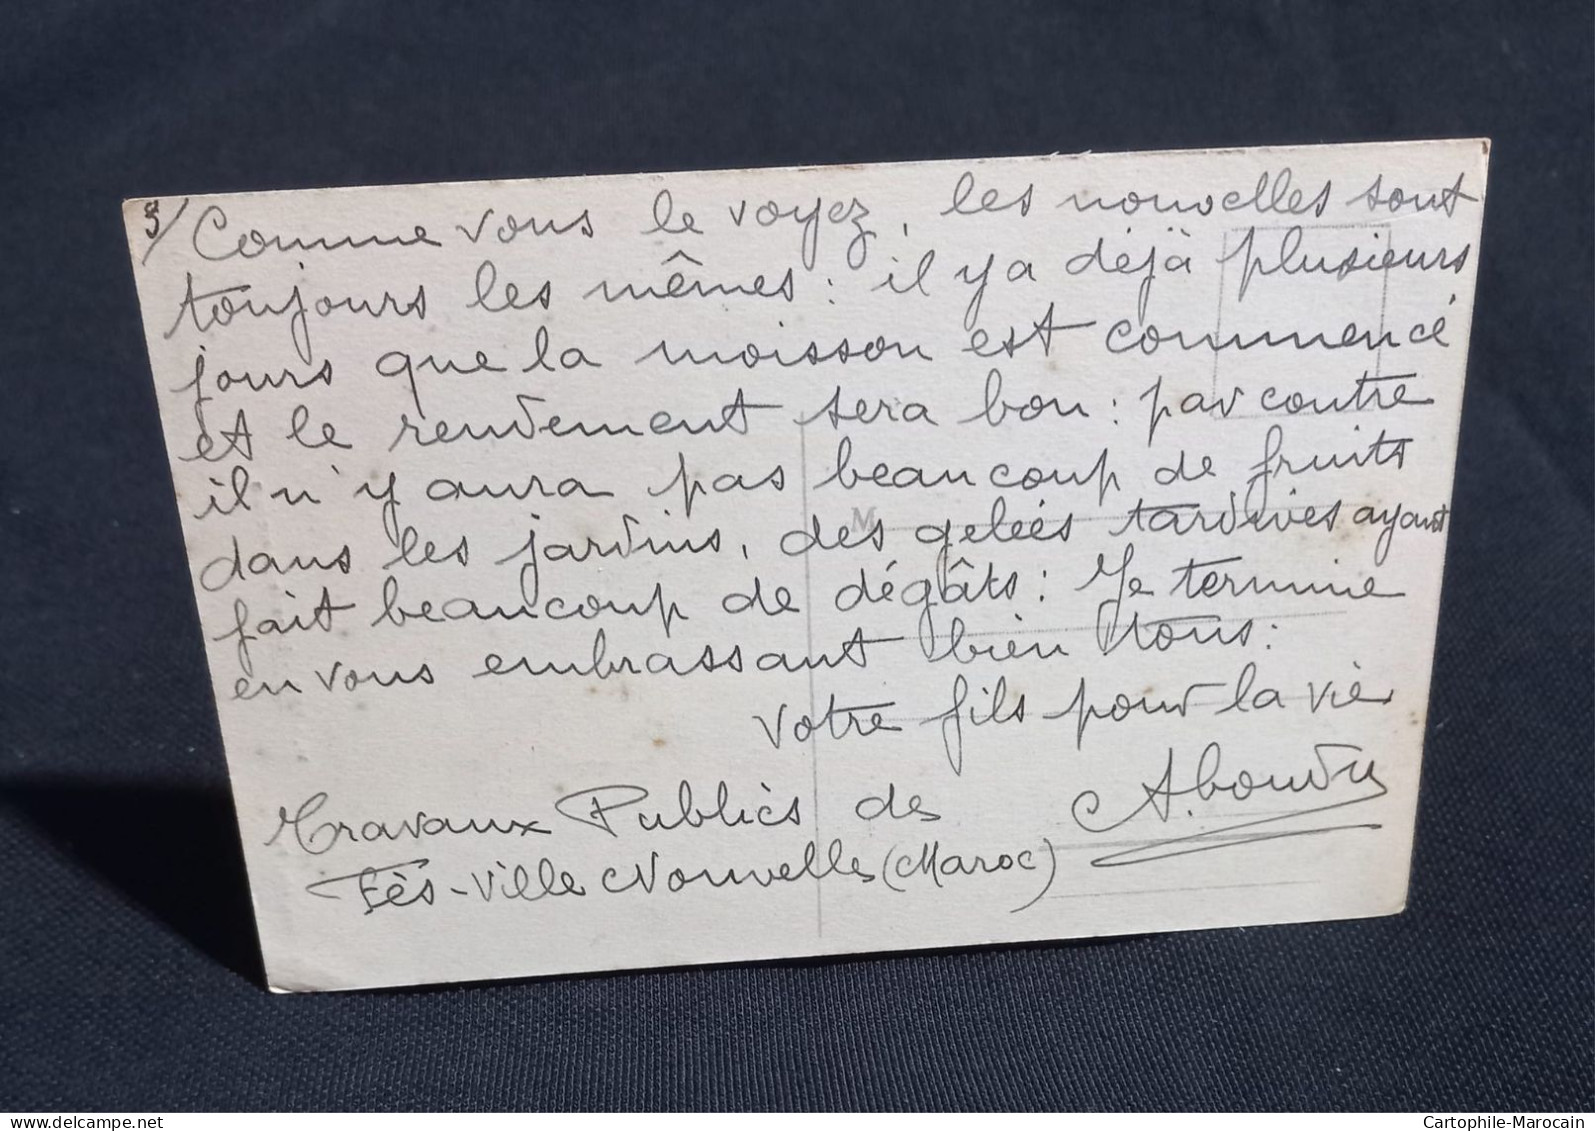 3/ Comme vous le voyez, les nouvelles sont
toujours les mêmes : il y a déjà plusieurs
jours que la moisson est commencé
et le rendement sera bon : par contre
il n'y aura pas beaucoup de fruits
dans les jardins, des gelées tardives ayant
fait beaucoup de dégâts : Je termine
en vous embrassant bien tous :
votre fils pour la vie
Travaux Publics de
Fès-Ville Nouvelle (Maroc)
M
Cartophile-Marocain
delcampe.net